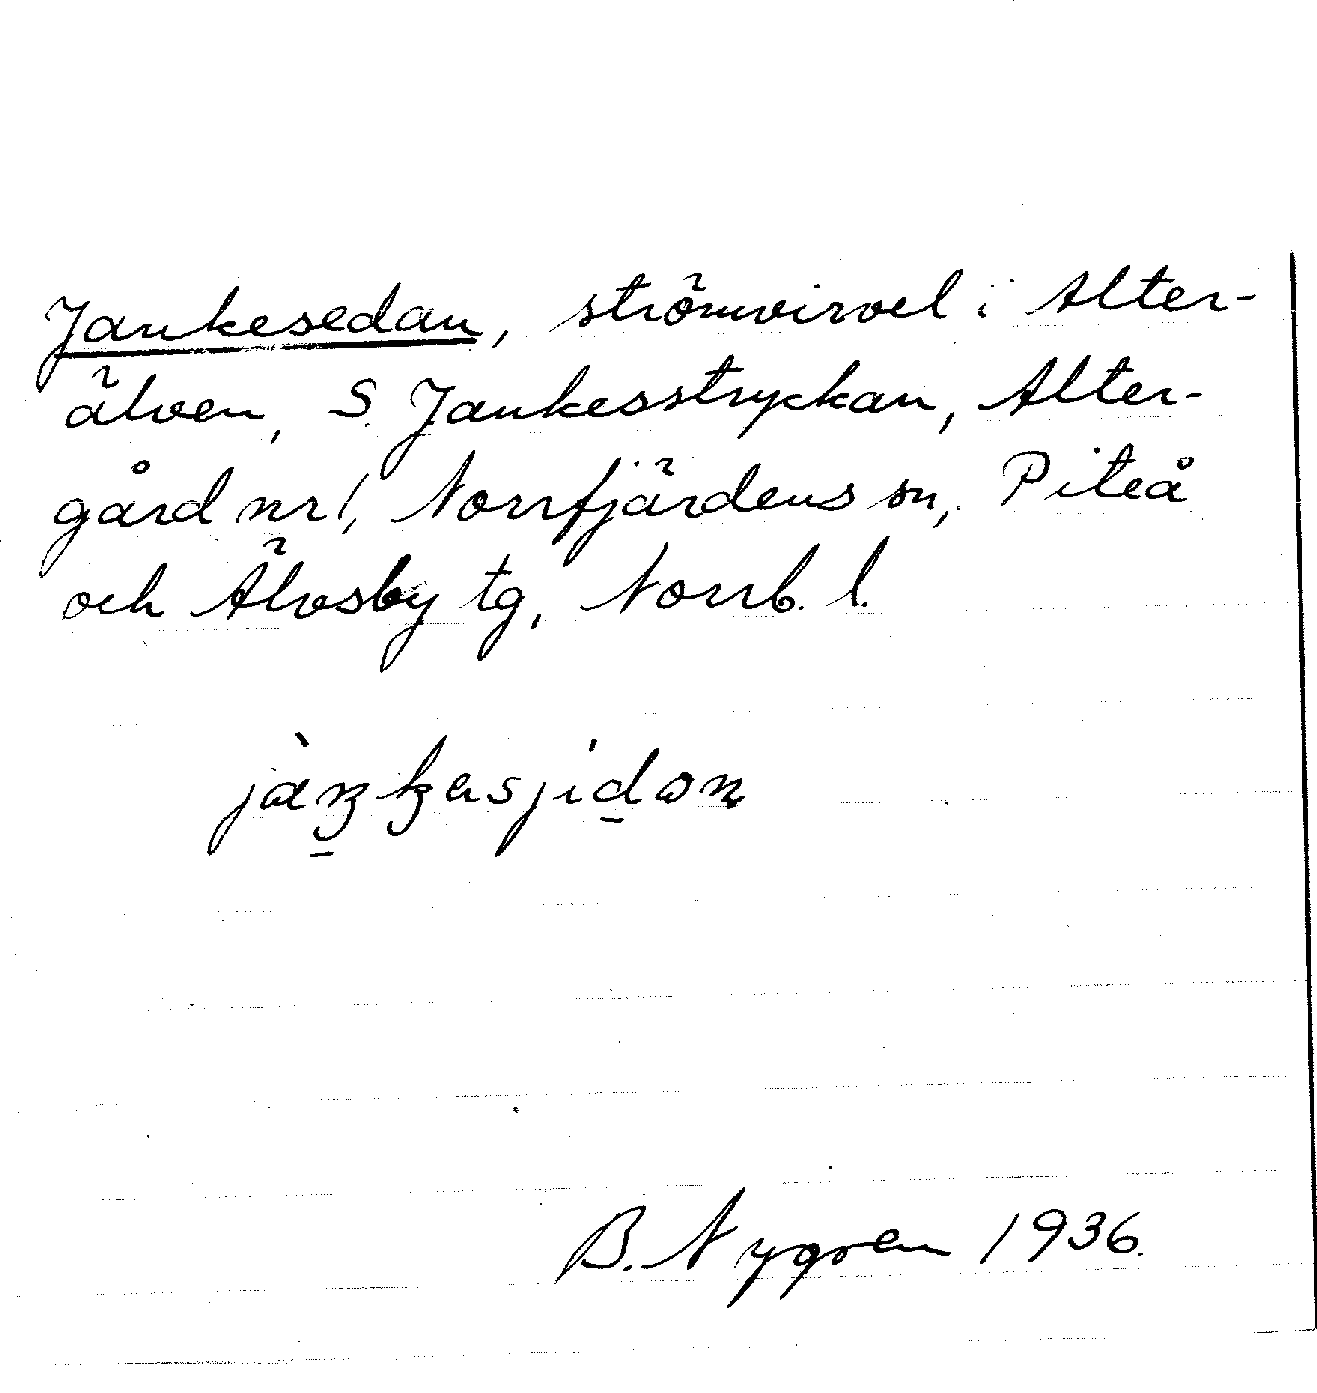 Jankesedan, strömvirvel i Alter-
älven, S. Jankesstryckan, Alter-
gård nr 1, Norrfjärdens sn, Piteå
och Älvsby tg, Norrb. l.
B. Nygren 1936.